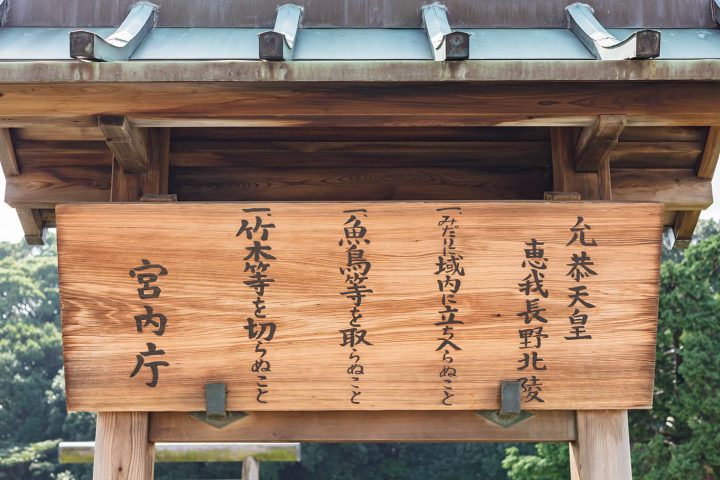 允恭天皇
恵我長野北陵
一、みだりに域内に立ち入らぬこと
一、魚鳥等を取らぬこと
一、竹木等を切らぬこと
宮内庁